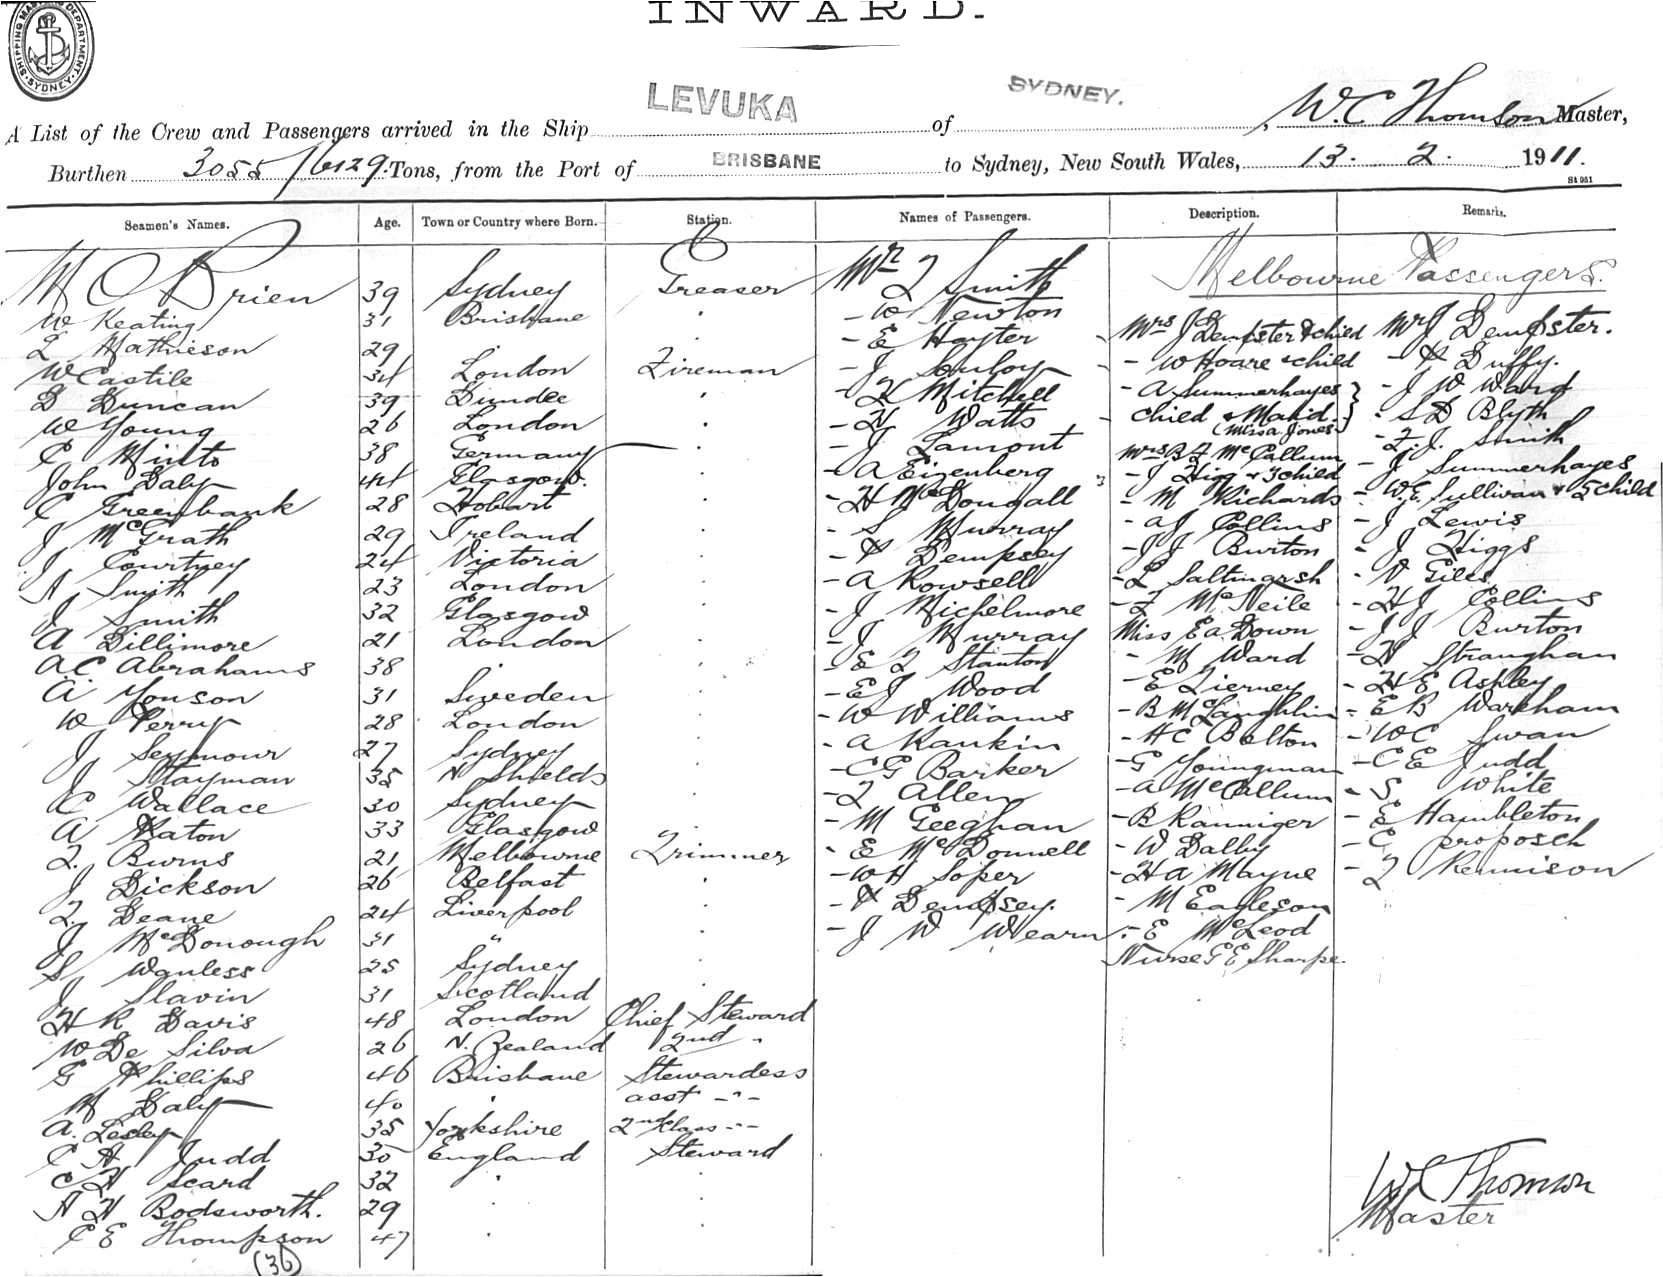 INWARD.
SHIPPING MASTER'S DEPARTMENT. SYDNEY
A List of the Crew and Passengers arrived in the Ship LEVUKA of SYDNEY. , W. C Thomson Master,
Burthen 3055/6129 Tons, from the Port of BRISBANE to Sydney, New South Wales, 13. 2. 1911.
St 951
Seamen's Names. Age. Town or Country where Born. Station. Names of Passengers. Description. Remarks.
M O Brien 39 Sydney Greaser
W Keating 31 Brisbane "
L Mathieson 29 "
W Castile 34 London Fireman
D Duncan 39 Dundee "
W Young 26 London "
C Minto 38 Germany "
John Daly 44 Glasgow. "
C Greenbank 28 Hobart "
J McGrath 29 Ireland "
J Courtney 24 Victoria "
A Smith 23 London "
J Smith 32 Glasgow "
A Dillimore 21 London "
A.C Abrahams 38 " "
A Monson 31 Sweden "
W Perry 28 London "
J Seymour 27 Sydney "
J Stayman 35 N Shields "
C Wallace 30 Sydney "
A Katon 33 Glasgow "
T. Burns 21 Melbourne Trimmer
J Dickson 26 Belfast "
T. Deane 24 Liverpool "
J McDonough 31 " "
S Wanless 25 Sydney "
J Slavin 31 Scotland "
H R Davis 48 London Chief Steward
W De Silva 26 N. Zealand 2nd "
G Phillips 46 Brisbane Stewardess
M Daly 40 " asst -"-
A. Lesley 35 Yorkshire 2nd Class -"-
C H Judd 30 England Steward
C H Scard 32 " "
A H Bodsworth. 29 " "
C E Thompson 47 " "
(36)
Mr F Smith
- W Newton
- E Hayter
- J
- F Mitchell
- H Watts
- J Lamont
- A Eizenberg
- H McDougall
- S Murray
- P Dempsey
- A Rowsell
- J Michelmore
- J Murray
- E F Stanton
- E J Wood
- W Williams
- A Rankin
- C G Barker
- F Allen
- M Geeghan
- E McDonnell
- W H Soper
- P Dempsey.
- J W Wearn
Melbourne Passengers.
Mrs J Dempster & child
- W Hoare & child
- A Summerhayes
child & Maid.
(Miss A Jones)
Mrs B F McCallum
- J Higg & 3 child
- M Richards
- A J Collins
- J J Burton
- L Saltmarsh
- F McNeile
Miss E A Down
- M Ward
- E Tierney
- B McLaughlin
- H C Bolton
- G Youngman
- A McCallum
- B Ranniger
- W Dalby
- H A Mayne
- M Eagleson
- E McLeod
Nurse G E Sharpe.
Mr J Dempster.
- P Duffy.
- J W Ward
- S D Blyth
- F. J. Smith
- J Summerhayes
- W. E. Sullivan & 5 child
- J Lewis
- J Higgs
- V Giles
- H J Collins
- J J Burton
- H Straughan
- H E Ashley
- E B Warkham
- W C Swan
- C E Judd
- S White
- E Hambleton
- C proposch
- F Rennison
W C Thomson
Master